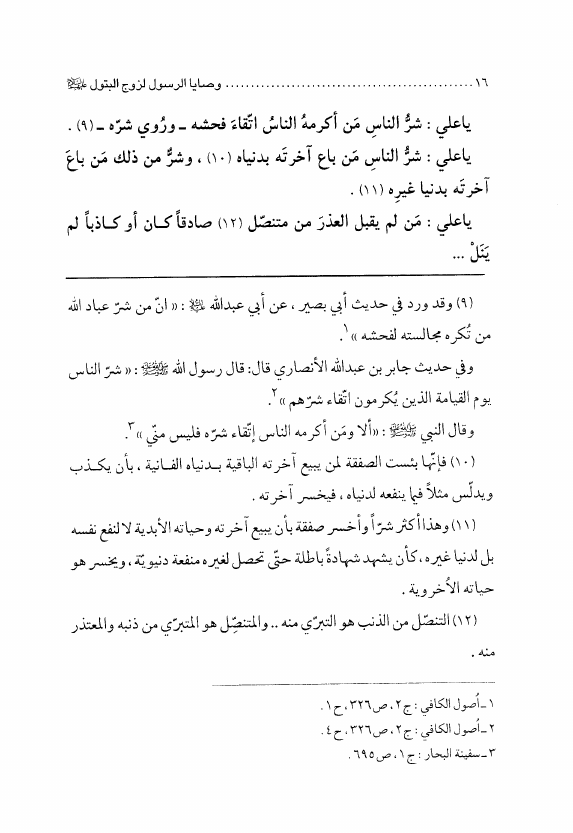 ١٦ ................................................ وصايا الرسول لزوج البتول عليهما السلام
ياعلي : شرُّ الناسِ مَن أكرمهُ الناسُ اتّقاءَ فحشه ـ ورُوي شرّه ـ (٩) .
ياعلي : شرُّ الناسِ مَن باع آخرتَه بدنياه (١٠) ، وشرٌّ من ذلك مَن باعَ
آخرتَه بدنيا غيرِه (١١) .
ياعلي : مَن لم يقبل العذرَ من متنصّل (١٢) صادقاً كـان أو كـاذباً لم
يَنَلْ ...
(٩) وقد ورد في حديث أبي بصير ، عن أبي عبدالله عليه السلام : « انّ من شرّ عباد الله
من تُكره مجالسته لفحشه »١.
وفي حديث جابر بن عبدالله الأنصاري قال: قال رسول الله صلى الله عليه وآله وسلم : « شرّ الناس
يوم القيامة الذين يُكرمون اتّقاء شرّهم »٢.
وقال النبي صلى الله عليه وآله وسلم : «ألا ومَن أكرمه الناس إتقاء شره فليس منّي »٣.
(١٠) فإنّها بئست الصفقة لمن يبيع آخرته الباقية بـدنياه الفـانية ، بأن يكـذب
ويدلّس مثلاً فيما ينفعه لدنياه ، فيخسر آخرته .
(١١) وهذا أكثر شرّاً وأخسر صفقة بأن يبيع آخرته وحياته الأبدية لا لنفع نفسه
بل لدنيا غيره ، كأن يشهد شهادةً باطلة حتّى تحصل لغيره منفعة دنيويّة ، ويخسر هو
حياته الاُخروية .
(١٢) التنصّل من الذنب هو التبرّي منه .. والمتنصِّل هو المتبرّي من ذنبه والمعتذر
منه .
١ ـ اُصول الكافي : ج ٢ ، ص ٣٢٦ ، ح ١ .
٢ ـ اُصول الكافي : ج ٢ ، ص ٣٢٦ ، ح ٤ .
٣ ـ سفينة البحار : ج ١ ، ص ٦٩٥ .